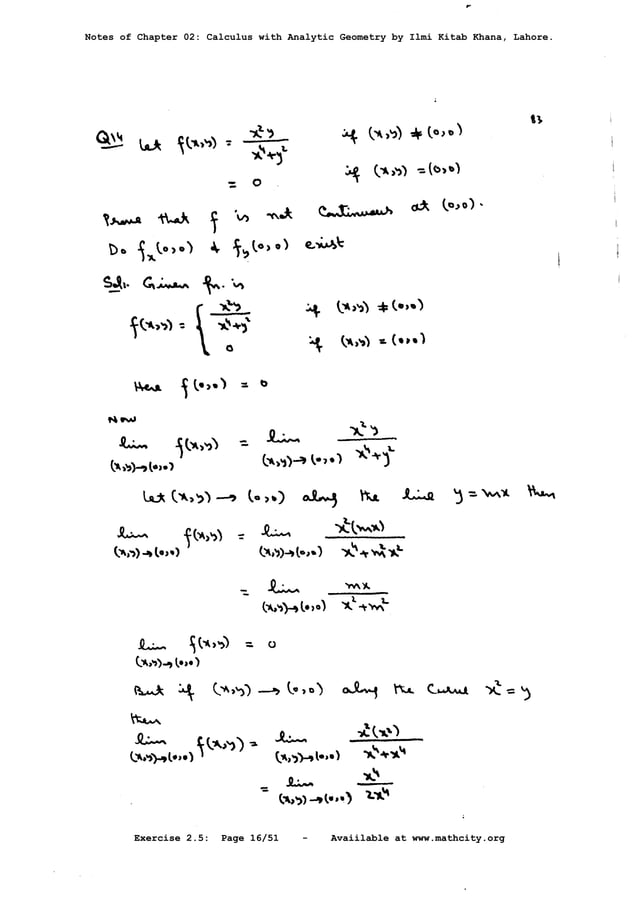 Notes of Chapter 02: Calculus with Analytic Geometry by Ilmi Kitab Khana, Lahore.
83
Q14 Let f(x,y) = x²y / (x⁴+y²) if (x,y) ≠ (0,0)
= 0 if (x,y) = (0,0)
Prove that f is not Continuous at (0,0).
Do fₓ(0,0) & f_y(0,0) exist
Sol. Given fn. is
f(x,y) = { x²y / (x⁴+y²) if (x,y) ≠ (0,0)
0 if (x,y) = (0,0)
Here f(0,0) = 0
Now
lim (x,y)→(0,0) f(x,y) = lim (x,y)→(0,0) x²y / (x⁴+y²)
Let (x,y) → (0,0) along the line y = mx then
lim (x,y)→(0,0) f(x,y) = lim (x,y)→(0,0) x²(mx) / (x⁴+m²x²)
= lim (x,y)→(0,0) mx / (x²+m²)
lim (x,y)→(0,0) f(x,y) = 0
But if (x,y) → (0,0) along the Curve x² = y
then
lim (x,y)→(0,0) f(x,y) = lim (x,y)→(0,0) x²(x²) / (x⁴+x⁴)
= lim (x,y)→(0,0) x⁴ / 2x⁴
Exercise 2.5: Page 16/51 - Avaiilable at www.mathcity.org